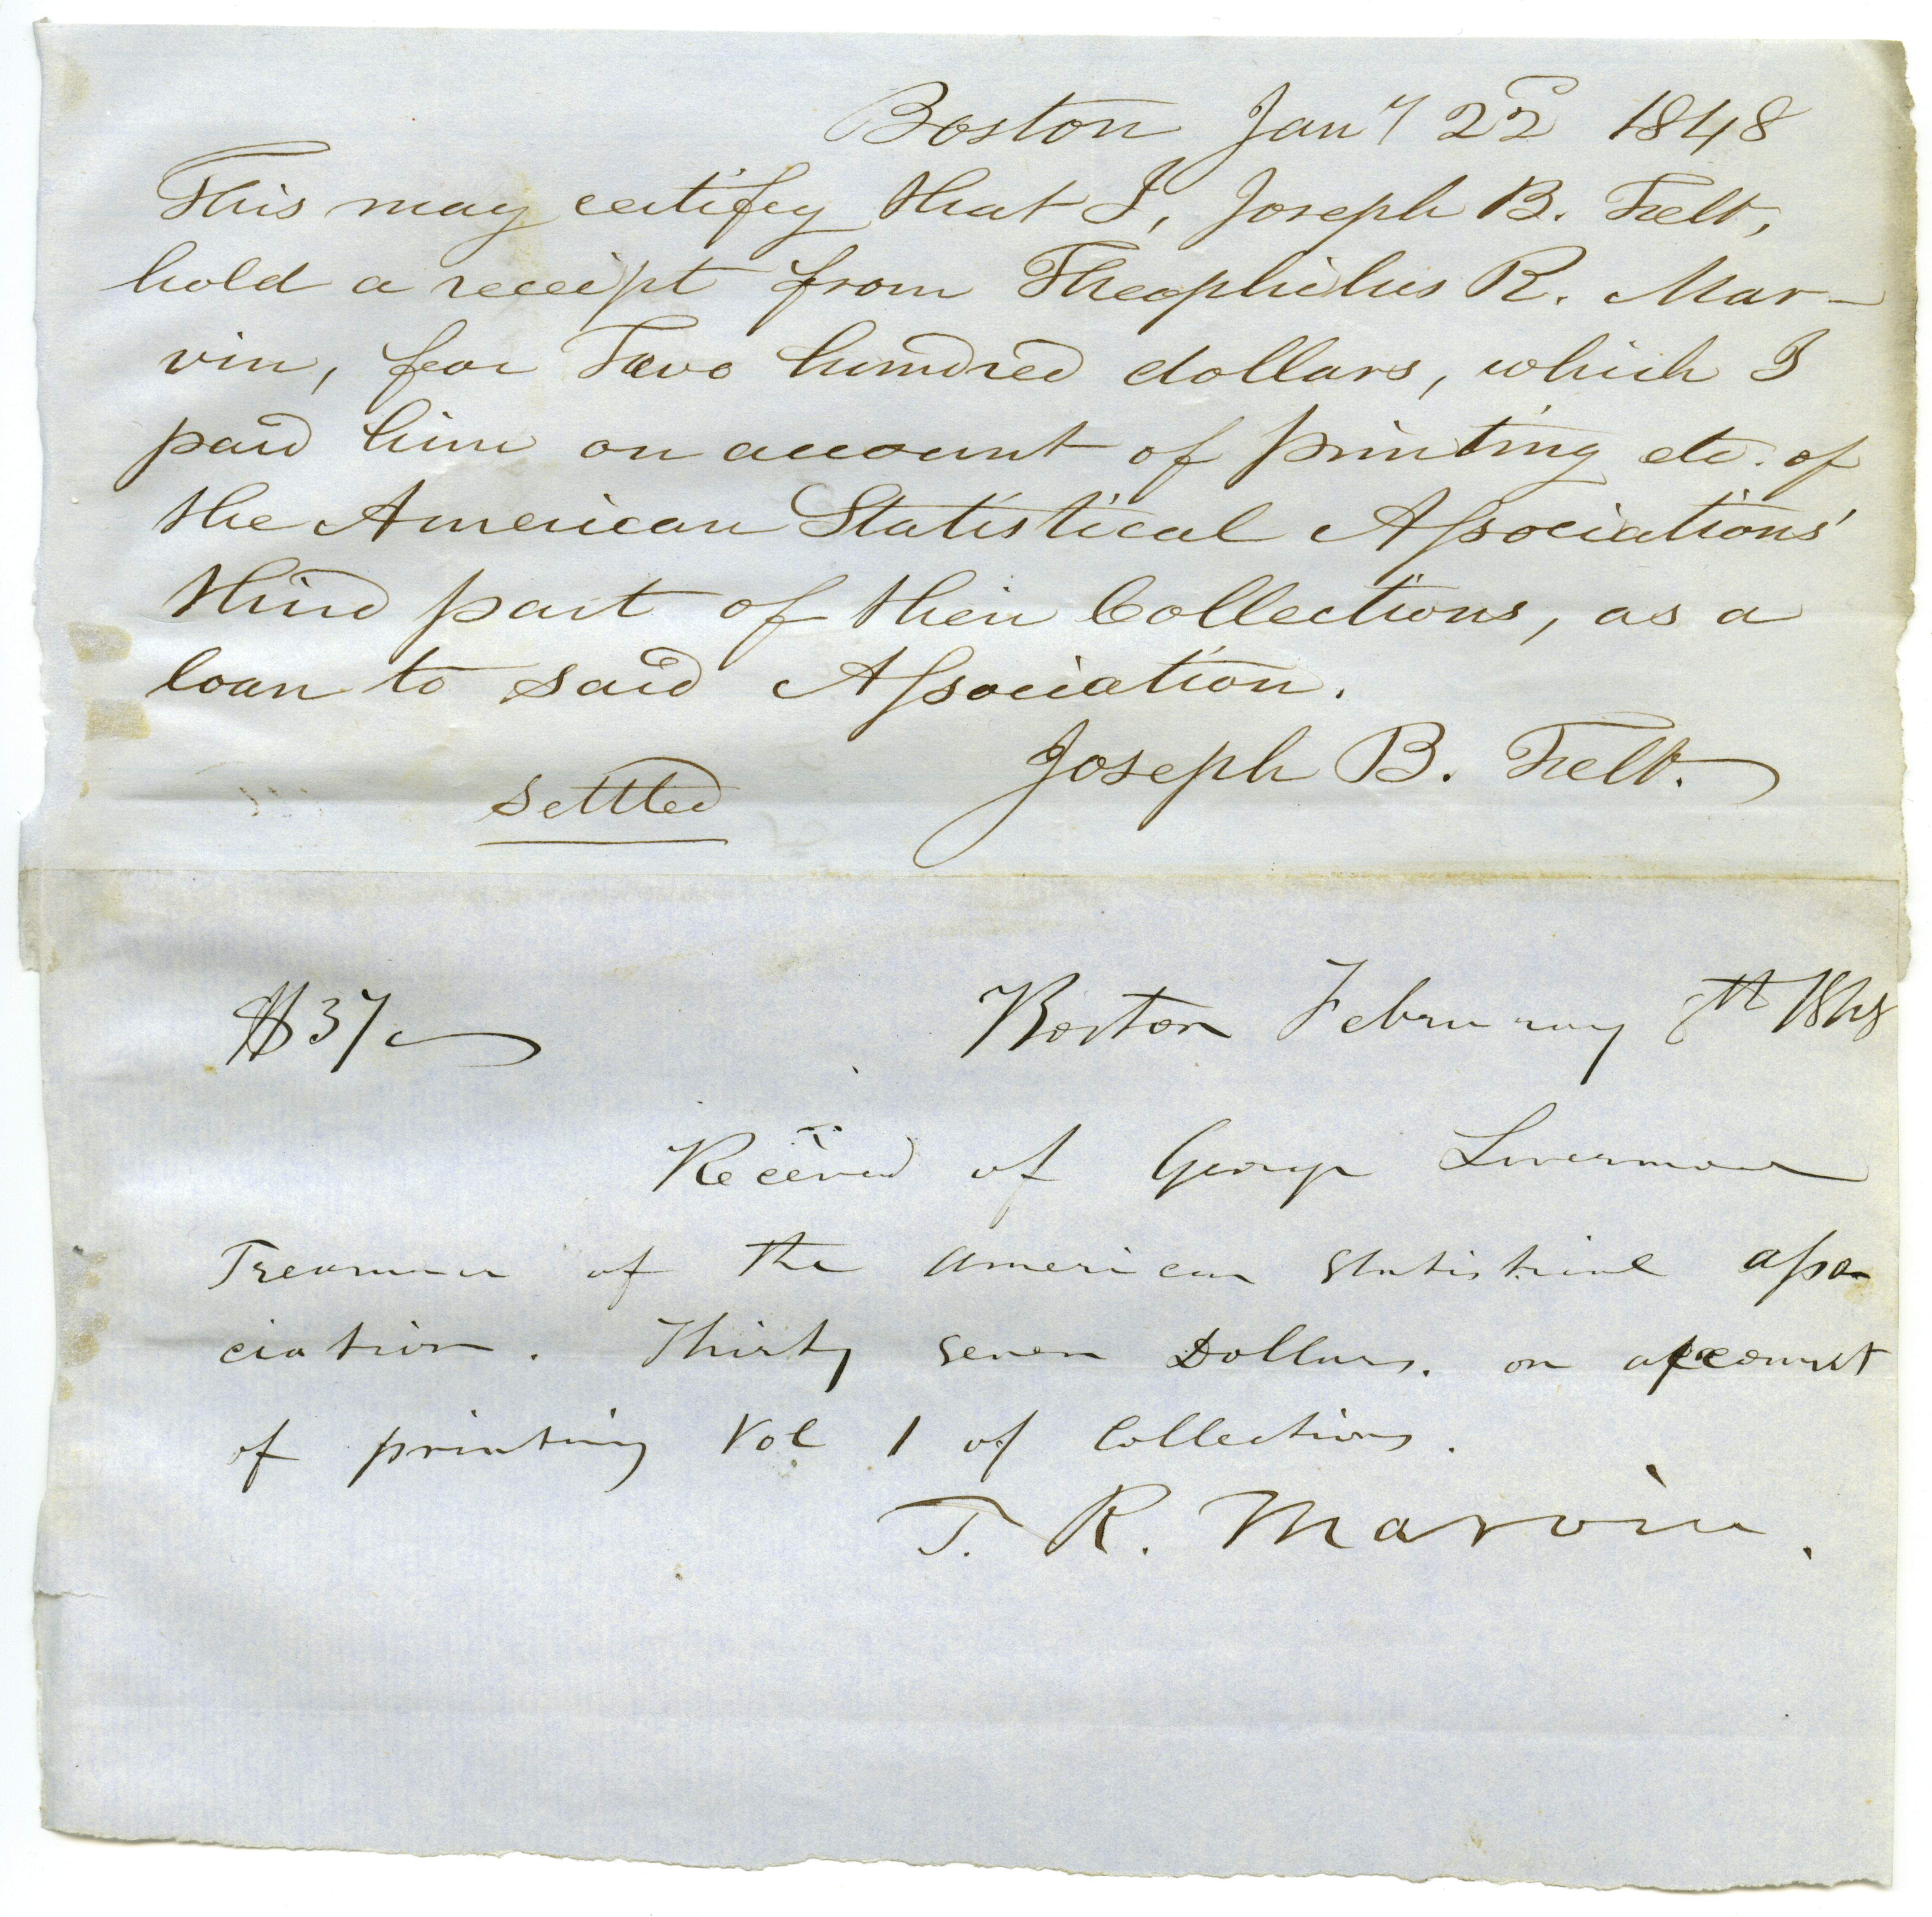 Boston Jany 22d 1848
This may certify that I, Joseph B. Felt,
hold a receipt from Theophilus R. Mar-
vin, for Two hundred dollars, which I
paid him on account of printing etc. of
the American Statistical Aſsociations'
third part of their Collections, as a
loan to said Aſsociation.
Joseph B. Felt.
settled
$37 Boston February th 1848
Received of George Livermore
Treasurer of the American Statistical aſso
ciation. Thirty seven Dollars. on account
of printing Vol 1 of Collections.
T. R. Marvin.